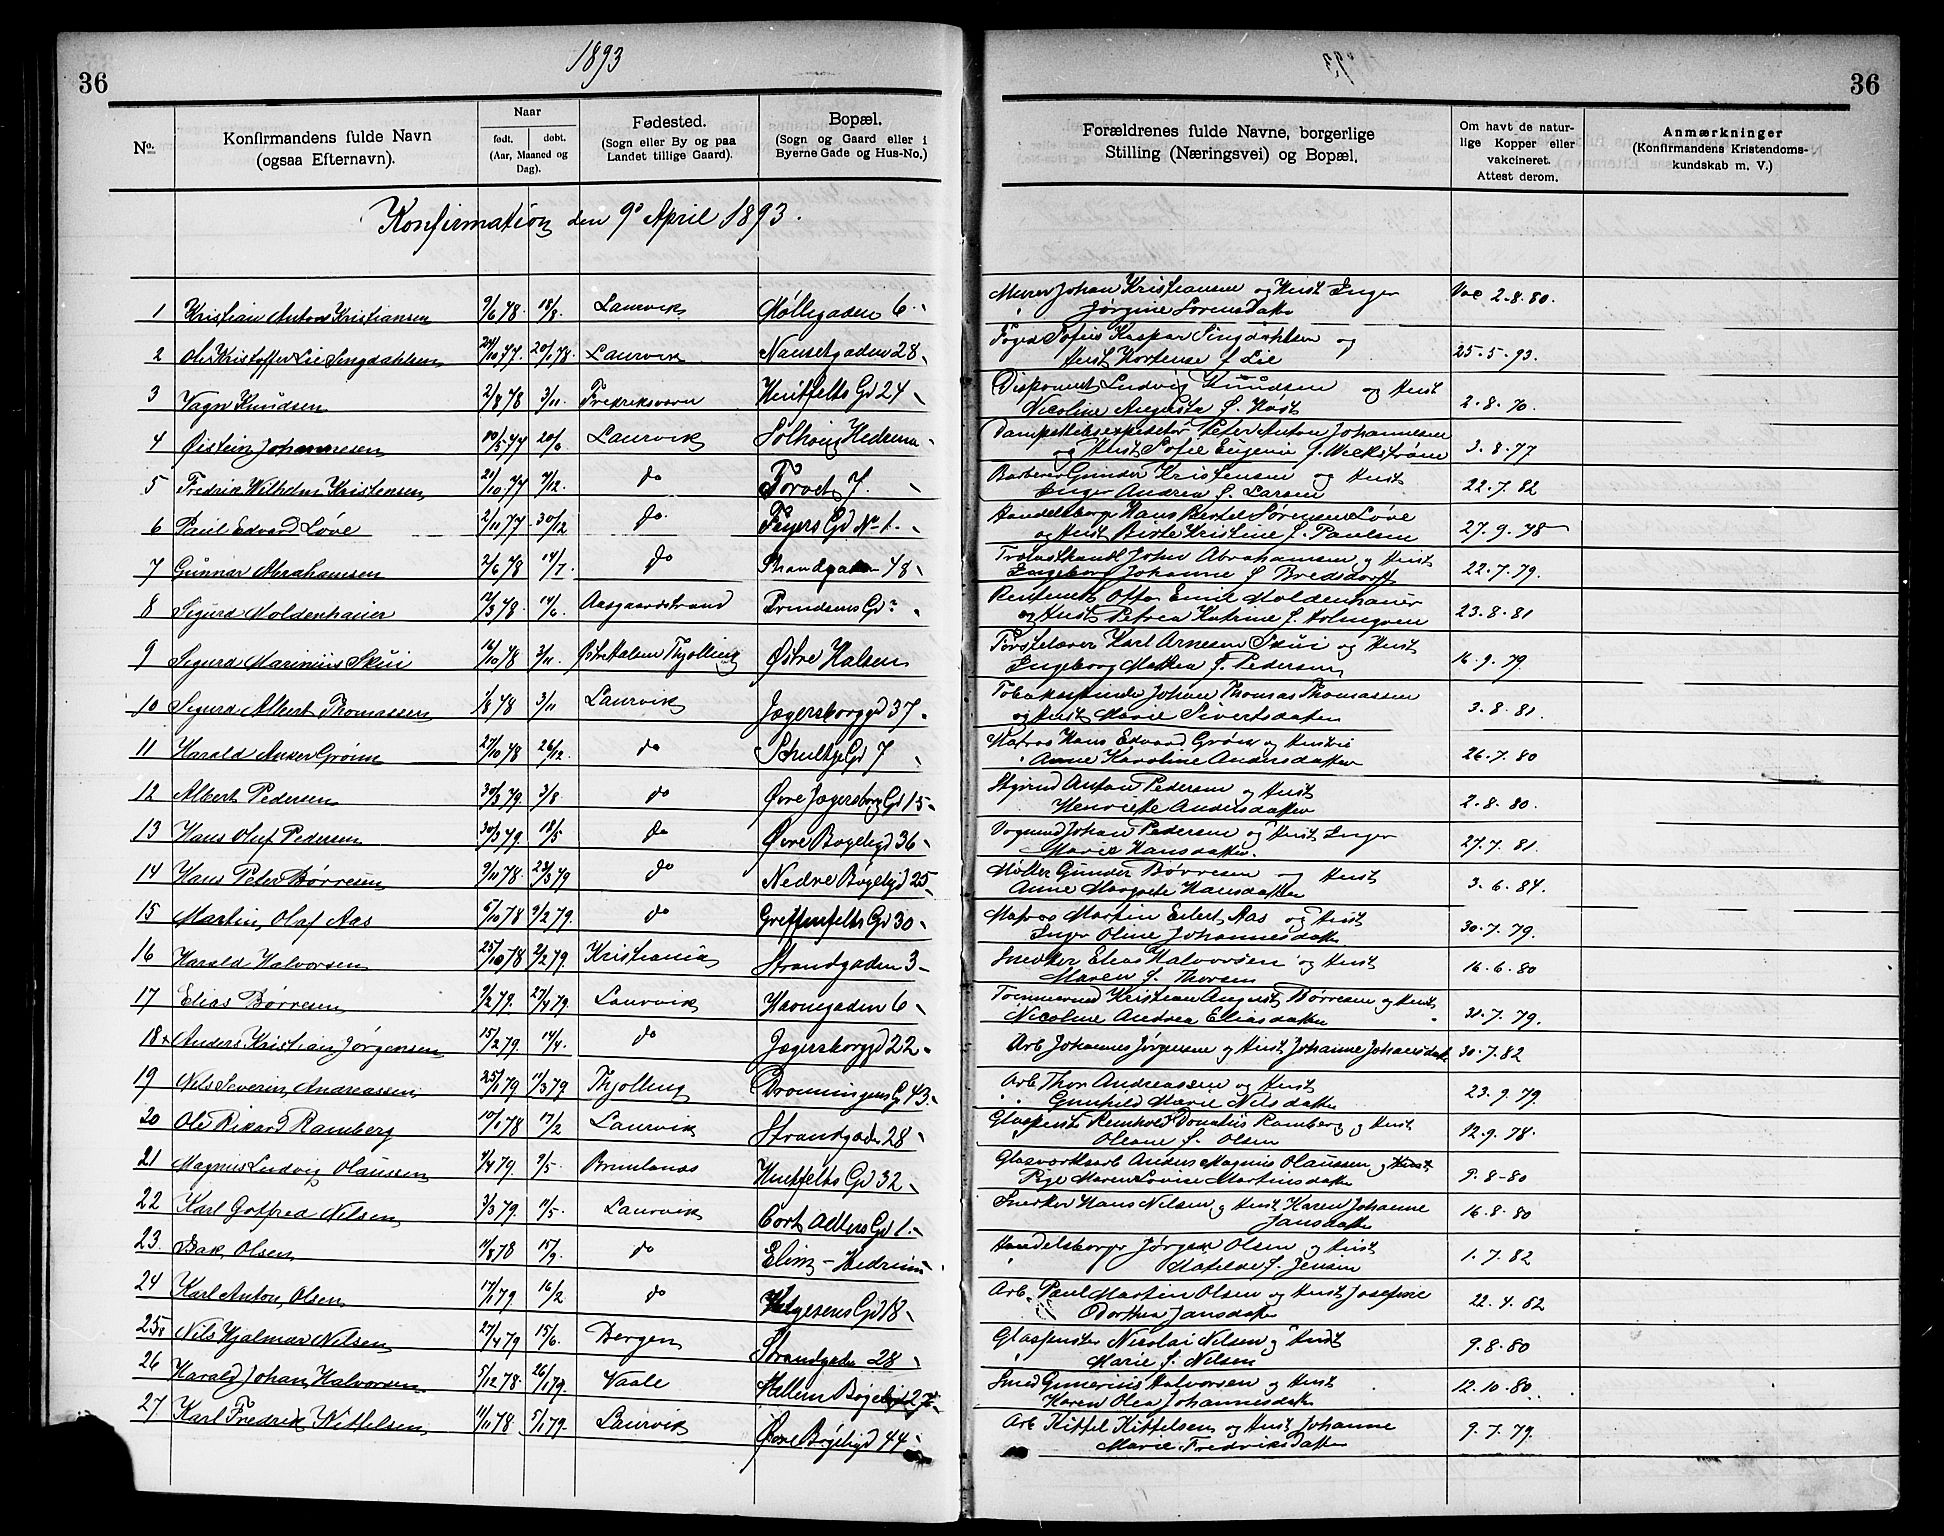 1893
36
36
No. Konfirmandens fulde Navn (ogsaa Efternavn).
Naar født, døbt. (Aar, Maaned og Dag).
Fødested. (Sogn eller By og paa Landet tillige Gaard).
Bopæl. (Sogn og Gaard eller i Byerne Gade og Hus-No.)
Forældrenes fulde Navne, borgerlige Stilling (Næringsvei) og Bopæl.
Om havt de naturlige Kopper eller vakcineret. Attest derom.
Anmærkninger (Konfirmandens Kristendomskundskab m. V.)
Konfirmation den 9de April 1893.
1 Kristian Anton Kristiansen 9/6 78 18/8 Laurvik Møllegaden 6 Murer Johan Kristiansen og Hust Inger Jørgine Sorensdatter Vac 2.8.80.
2 Ole Kristoffer Lie Singdahlsen 24/10 77. 20/1 78. Laurvik Nansetgaden 28 Foged Sofus Kaspar Singdahlsen og Hust Hortense f Lie 25.5.93.
3 Vagn Knudsen 2/8 78 3/11. Fredriksværn Huitfelts Gd 24 Ludvig Knudsen og Hust Nicoline Augusta f. Høst 2.8.70.
4 Øistein Johannesen 20/6 Laurvik Solhoug Hedrum Peter Anton Johannesen og Hust Sofie Eugenie f. Weckstrøm 3.8.77
5 Fredrik Wilhelm Kristensen 21/10 77 7/12. do Torvet 7. Barberer Gunder Kristensen og Hust Inger Andrea f. Larsen 22.7.82
6 Paul Edvard Løve 2/11 77. 30/12 do. Feyers Gd No 1. Handelsborg Hans Bertel Sørensen Løve og Hust Birte Kristine f. Paulsen 27.9.78
7 Gunnar Abrahamsen 2/6 78 14/7 do Strandgaden 48 Trælasthandl John Abrahamsen og Hust Ingeborg Johanne f Bredsdorff 22.7.79.
8 Sigurd Moldenhauer 12/3 78. 14/6. Aasgaardstrand Frendsens Gd Otto Emil Moldenhauer og Hust Petrea Katrine f. Holmgren 23.8.81
9 Sigurd Marinius Skui 16/10 78 3/11. Østre Halsen Thjølling Østre Halsen Karl Arnesen Skui og Hust Ingeborg Mathea f. Pedersen 16.9.79.
10 Sigurd Albert Thomassen 1/8 78 3/11 Laurvik Jægersborggd 37 Tobakspinder Johan Thomas Thomassen og Hust Marie Sivertsdatter 3.8.81.
11 Harald Anker Grønn 27/10 78 26/12. do Schultze Gd 7 Matros Hans Edvard Grønn og Hustru Anne Karoline Andersdatter 26.7.80
12 Albert Pedersen 30/3 79. 3/8 do Øvre Jægersborg Gd 15 Anton Pedersen og Hust Henriette Andersdatter 2.8.80.
13 Hans Oluf Pedersen 30/3 79. 18/5 do Øvre Bøgeligd 36 Vognmd Johan Pedersen og Hust Inger Marie Hansdatter. 27.7.81.
14 Hans Peter Børresen 9/11 78. 23/3 79 do Nedre Bøgeligd 25 Møller Gunder Børresen og Hust Anne Margrete Hansdatter 3.6.84.
15 Martin Olaf Aas 5/10 78 9/2 79. do Greffenfelts Gd 30 Matros Martin Eilert Aas og Hust Inger Oline Johannesdatter 30.7.79.
16 Harald Halvorsen 25/10 78 2/2 79. Kristiania Strandgaden 3 Snedker Elias Halvorsen og Hust Maren f. Thorsen 16.6.80
17 Elias Børresen 9/2 79. 27/4 79 Laurvik Havnegaden 6 Tømmermd Kristian August Børresen og Hust Nicoline Andrea Eliasdatter 31.7.79.
18 Anders Kristian Jørgensen 15/2 79 14/4. do Jægersborggd 22 Arb Johannes Jørgensen og Hust Johanne Johansdatt 30.7.82
19 Nils Severin Andreassen 25/1 79 11/3 79 Thjølling Dronningens G 43 Arb Thor Andreassen og Hust Gunhild Marie Nilsdatter 23.9.79.
20 Ole Rikard Ramberg 10/1 78 17/2 Laurvik Strandgaden 28 Reinhold Donatius Ramberg og Hust Oleane f. Olsen 12.9.78.
21 Magnus Ludvig Olaussen 7/4 79. 9/5. Brunlanæs Huitfelts Gd 32 Glasværksarb Anders Magnus Olaussen og Pige Maren Lovise Martinsdatter 9.8-80
22 Karl Gotfred Nilsen 3/3 79. 11/5. Laurvik Cort Adlers Gd 1. Snedker Hans Nilsen og Hust Karen Johanne Jansdatter 16.8.80
23. Isak Olsen 11/8 78 15/9. do Elim - Hedrum Handelsborger Jørgen Olsen og Hust Matilde f. Jensen 1.7.82
24 Karl Anton Olsen 17/1 79 16/2 do Helgesens Gd 18 Arb. Paul Martin Olsen og Hust Josefine Dorthea Jansdatter 22.4.82
25 Nils Hjalmar Nilsen 27/4 79 15/6. Bergen Strandgaden 28 Nicolai Nilsen og Hust Marie f. Nilsen 9.8.80
26 Harald Johan Halvorsen 5/12 78. 26/1 79. Vaale Mellem Bøgeligd 27 Smed Gunerius Halvorsen og Hust Karen Olea Johannesdatter 12.10.80
27 Karl Fredrik Kittelsen 11/11 78. 5/1 79. Laurvik Øvre Bøgeligd 44 Arb Kittel Kittelsen og Hust Johanne Marie Fredriksdatter 9.7.79.